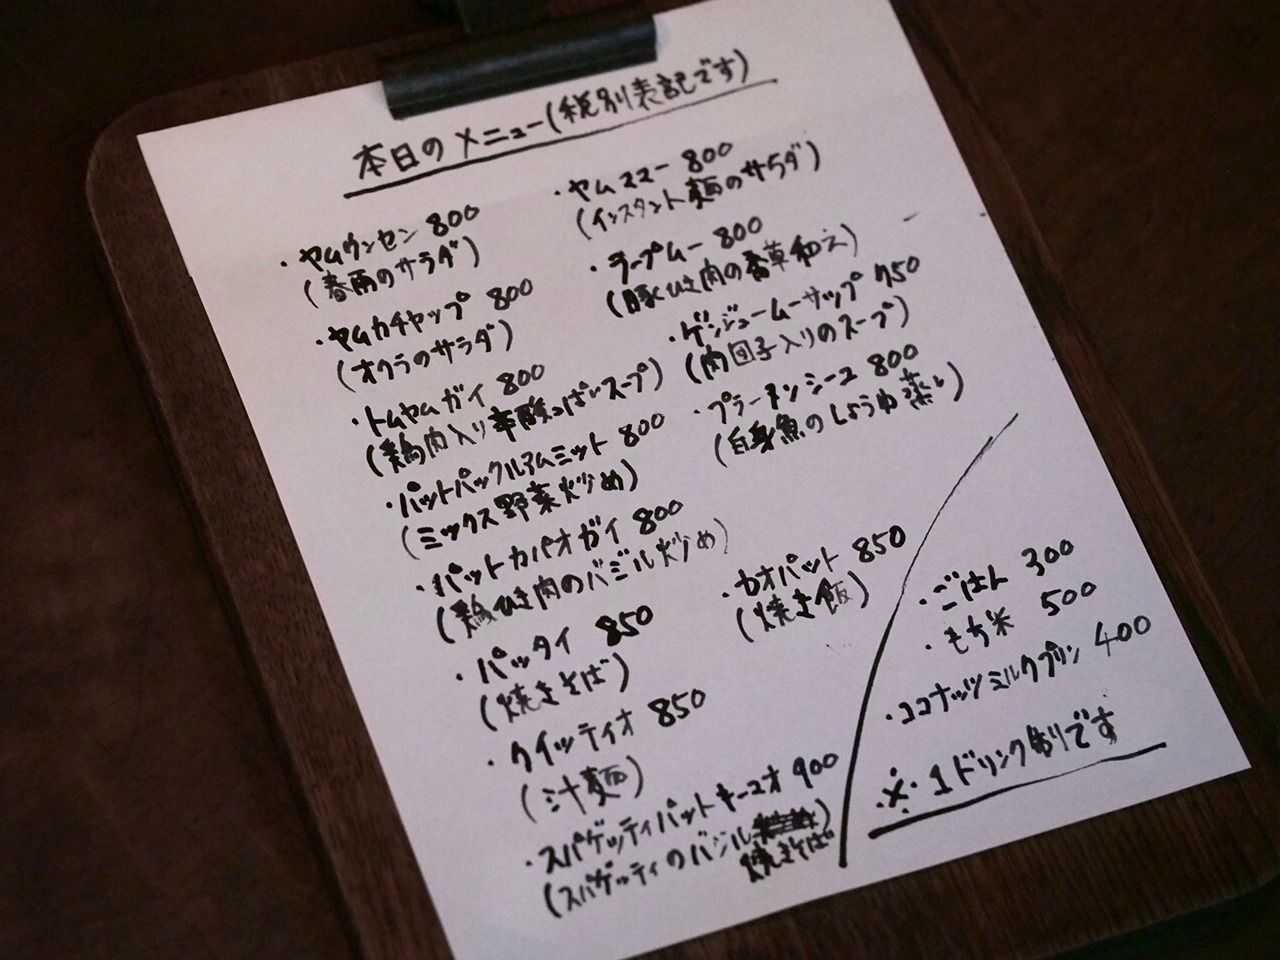 本日のメニュー(税別表記です)
・ヤムウンセン 800
(春雨のサラダ)
・ヤムカチャップ 800
(オクラのサラダ)
・トムヤムガイ 800
(鶏肉入り辛酸っぱいスープ)
・パットパックルアムミット 800
(ミックス野菜炒め)
・パットカパオガイ 800
(鶏ひき肉のバジル炒め)
・パッタイ 850
(焼きそば)
・クイッティオ 850
(汁麺)
・スパゲッティパットキーマオ 900
(スパゲッティのバジル
焼きそば)
・ヤムママー 800
(インスタント麺のサラダ)
・ラープムー 800
(豚ひき肉の香草和え)
・ゲンジュームーサップ 750
(肉団子入りのスープ)
・プラーヌンシーユ 800
(白身魚のしょうゆ蒸し)
・カオパット 850
(焼き飯)
・ごはん 300
・もち米 500
・ココナッツミルクプリン 400
※・1ドリンク制です